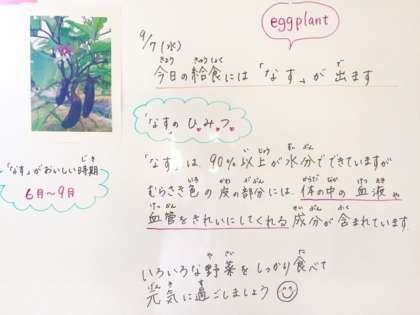 eggplant
9/7(水)
今日の給食には「なす」が出ます
「なすのひ.み.つ.」
「なす」は、90%以上が水分でできていますが
むらさき色の皮の部分には、体の中の血液や
血管をきれいにしてくれる成分が含まれています.
いろいろな野菜をしっかり食べて
元気に過ごしましょう
「なす」がおいしい時期
6月〜9月